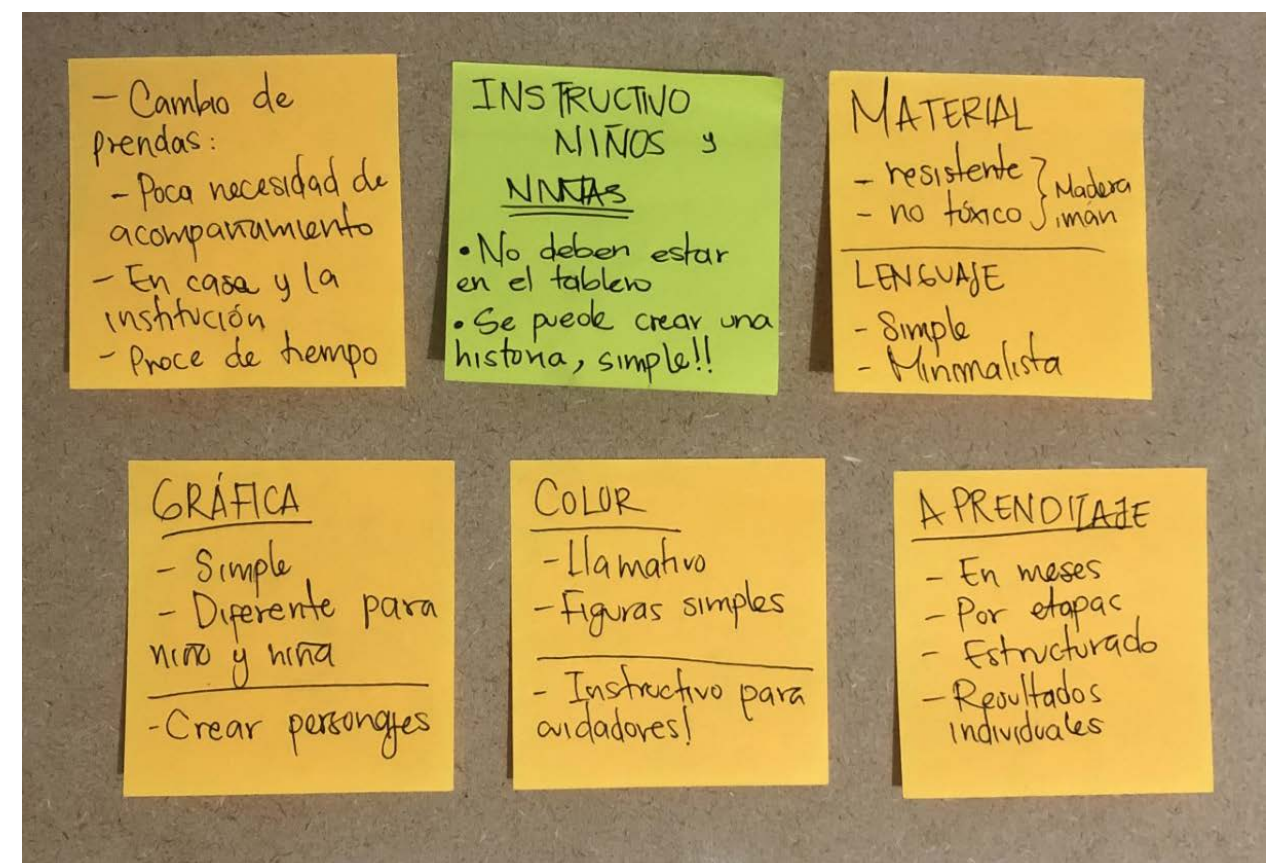 - Cambio de
prendas:
- Poca necesidad de
acompañamiento
- En casa y la
institución
- Proce de tiempo
INSTRUCTIVO
NIÑOS y
NIÑAS
• No deben estar
en el tablero
• Se puede crear una
historia, simple!!
MATERIAL
- resistente } Madera
- no tóxico } imán
LENGUAJE
- Simple
- Minimalista
GRÁFICA
- Simple
- Diferente para
niño y niña
- Crear personajes
COLOR
- Llamativo
- Figuras simples
- Instructivo para
cuidadores!
APRENDIZAJE
- En meses
- Por etapas
- Estructurado
- Resultados
individuales